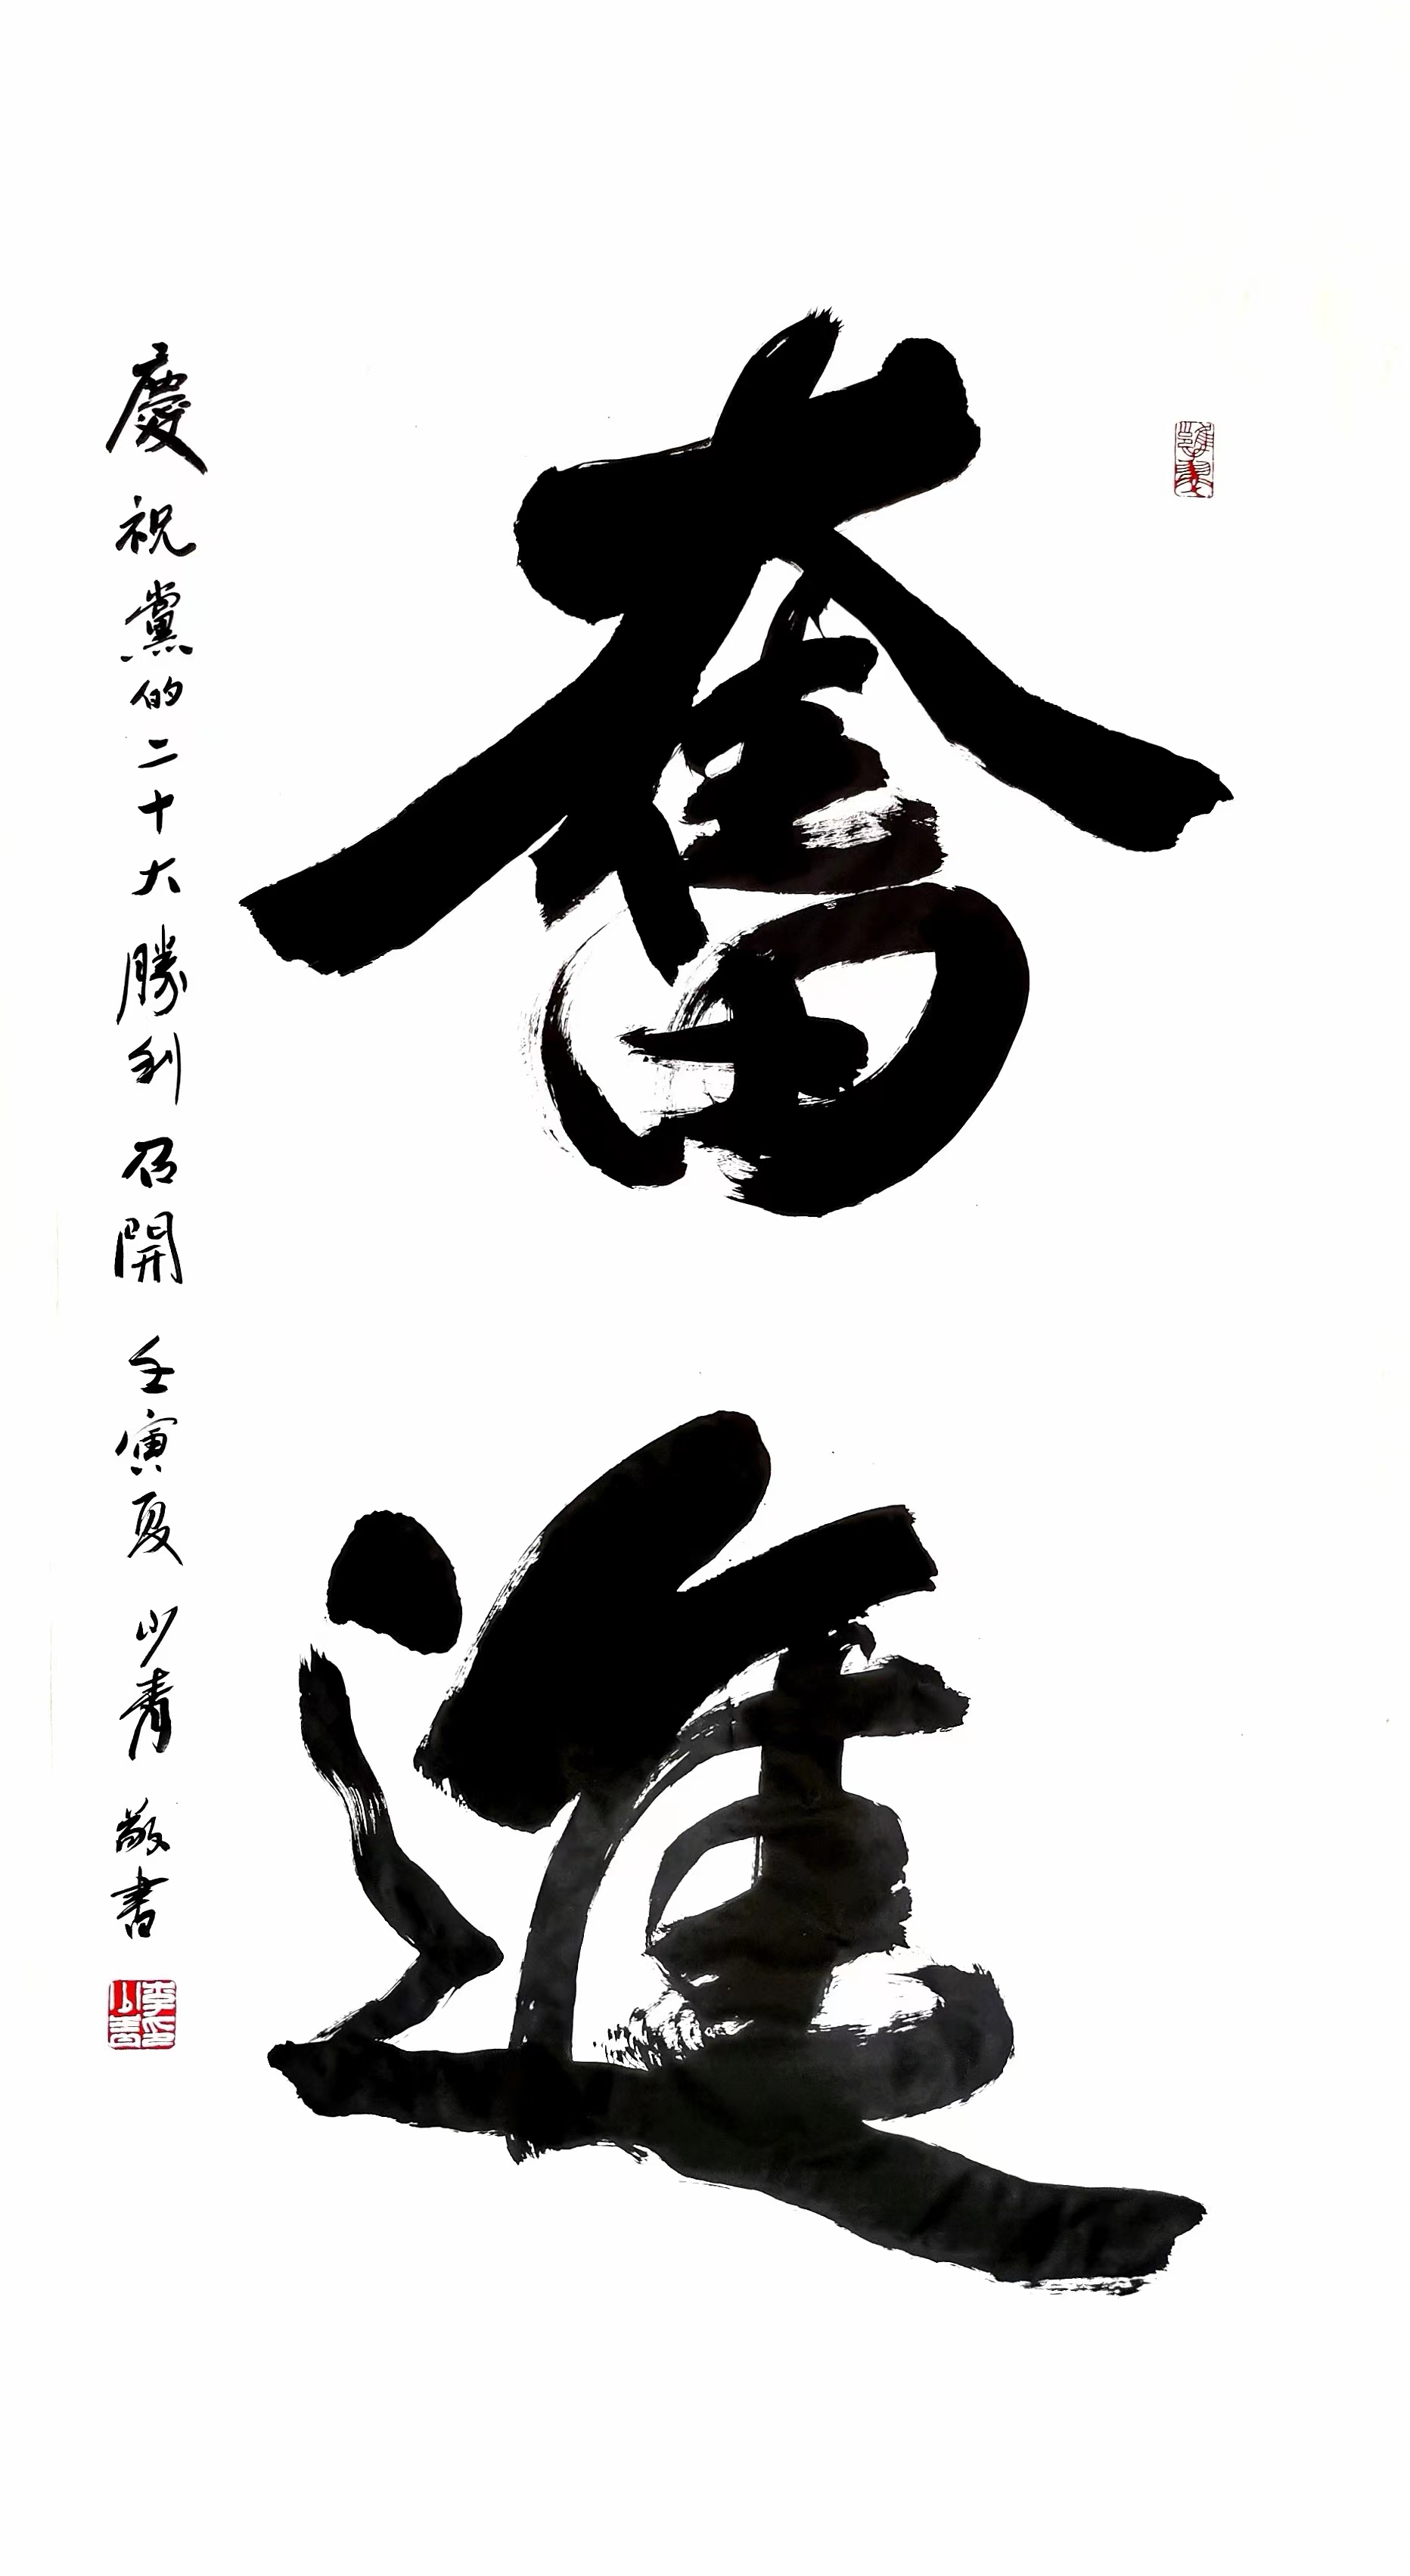 奮進
慶祝黨的二十大勝利召開 壬寅夏 少青敬書